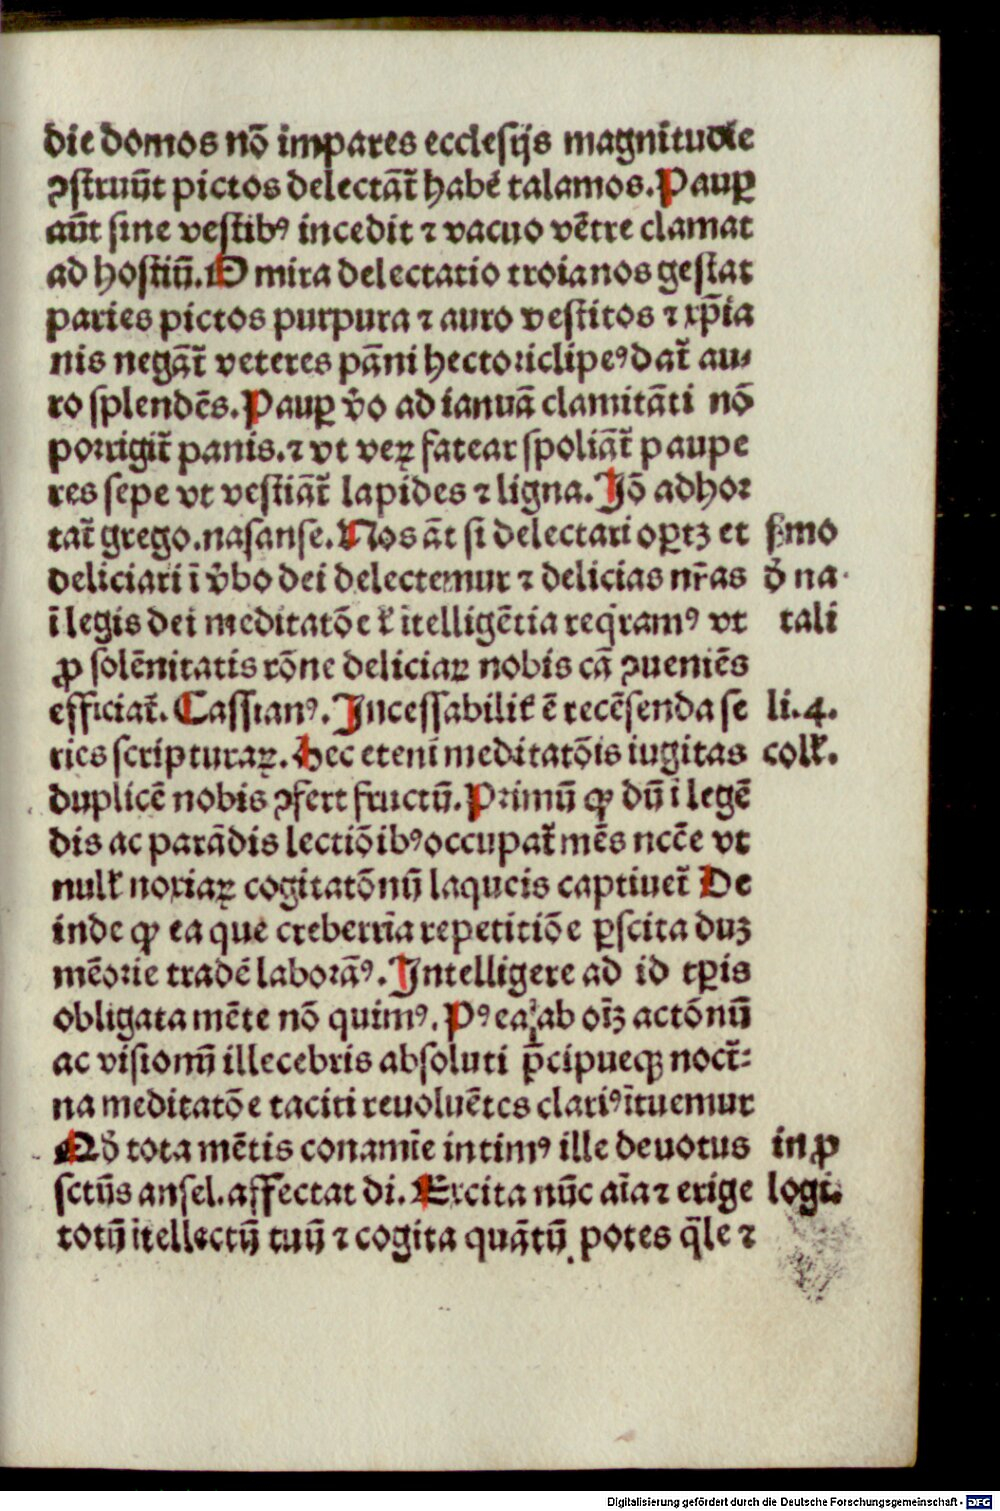 die domos nō impares ecclesijs magnitudīe
ꝯstruūt pictos delectāt᷑ habē talamos. Pauꝑ
aūt sine vestibꝰ incedit ⁊ vacuo vētre clamat
ad hostiū. O mira delectatio troianos gestat
paries pictos purpura ⁊ auro vestitos ⁊ xp̄ia
nis negāt᷑ veteres pāni hectori clipeꝰ dat᷑ au⸗
ro splendēs. Pauꝑ v̄o ad ianuā clamitāti nō
porrigit᷑ panis. ⁊ vt veꝝ fatear spoliāt᷑ paupe
res sepe vt vestiāt᷑ lapides ⁊ ligna. Jō adhor
tat᷑ grego. nasanse. Nos āt si delectari oꝑtꝫ et
deliciari ī v̄bo dei delectemur ⁊ delicias nr̄as
ī legis dei meditatōe ⁊ ītelligētia reqͥramꝰ vt
ꝓ solēnitatis rōne deliciaꝝ nobis cā ꝯueniēs
efficiat᷑. Cassianꝰ. Jncessabilit᷑ ē recēsenda se
ries scripturaꝝ. Hec etenī meditatōis iugitas
duplicē nobis ꝯfert fructū. Primū ꝙ dū ī legē
dis ac parādis lectiōibꝰ occupat᷑ mēs nccē̄ vt
null᷑ noxiaꝝ cogitatōnū laqueis captiuet᷑ De
inde ꝙ ea que creberrīa repetitiōe ꝑscita duꝫ
mēorie tradē laborāꝰ. Jntelligere ad id tꝑis
obligata mēte nō quimꝰ. Pꝰea ab oīꝫ actōnū
ac visionū illecebris absoluti p̄cipueqꝫ noct᷑⸗
na meditatōe taciti reuoluētes clariꝰ ītuemur
Qd̄ tota mētis conamīe intimꝰ ille deuotus
sctūs ansel. affectat di. Excita nūc aīa ⁊ erige
totū ītellectū tuū ⁊ cogita quātū potes qͣle ⁊
s̄mo
d̄ na
tali
li. 4.
coll᷑.
in ꝓ
logi.
Digitalisierung gefördert durch die Deutsche Forschungsgemeinschaft - DFG